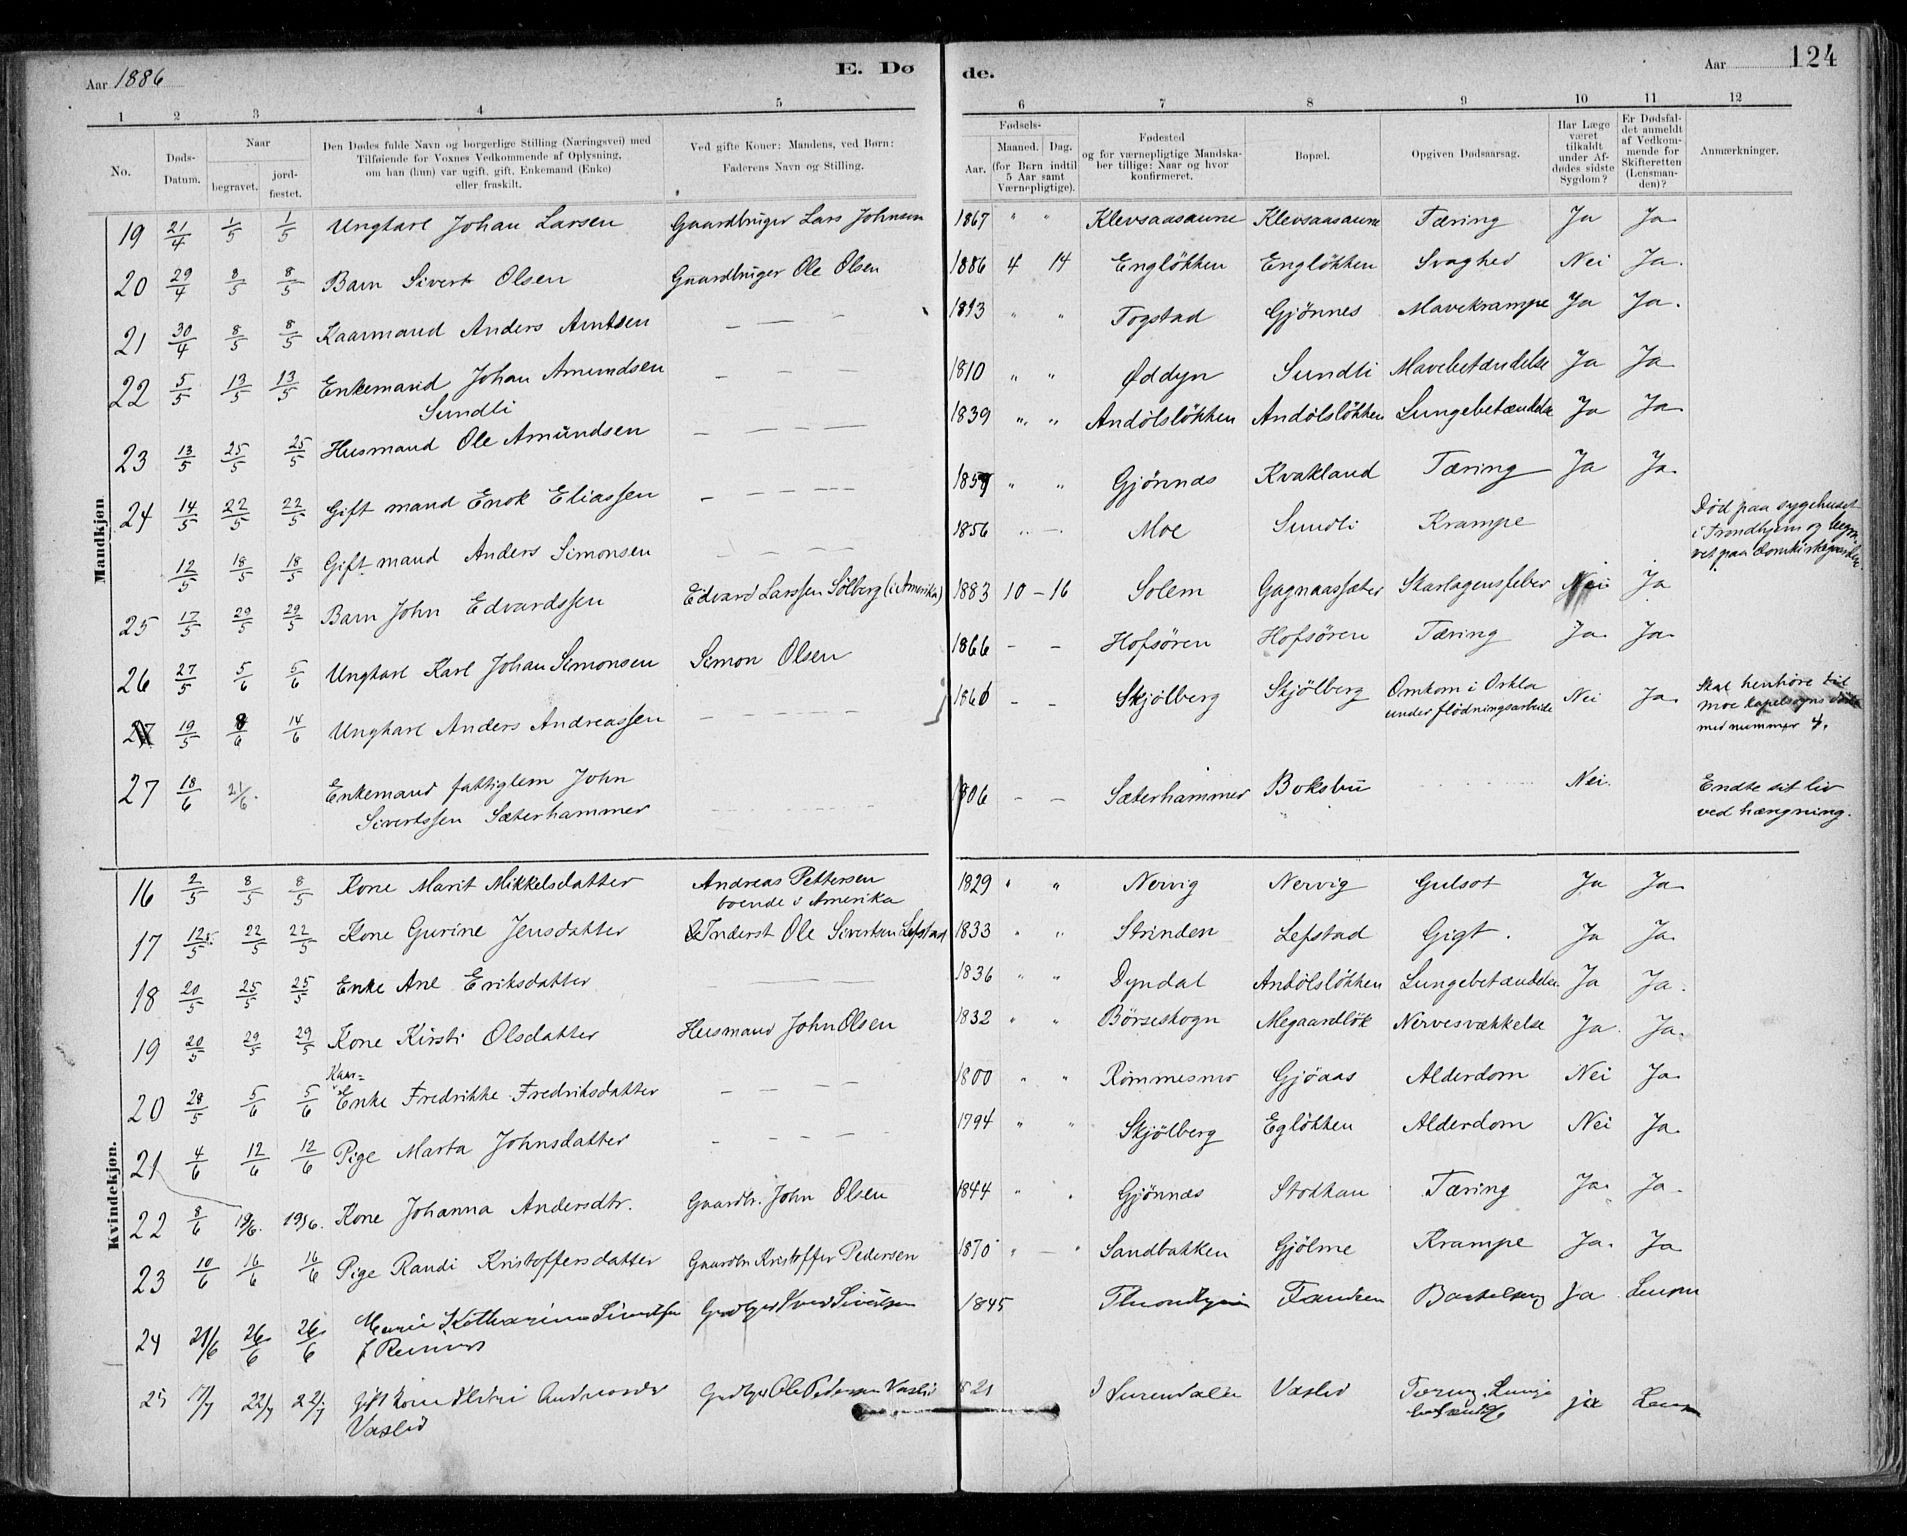 Aar 1886
E. Dø
de.
Aar
124
1 2 3 4 5 6 7 8 9 10 11 12
No.
Døds-
Datum.
Naar
begravet.
jord-
fæstet.
Den Dødes fulde Navn og borgerlige Stilling (Næringsvei) med
Tilføiende for Voxnes Vedkommende af Oplysning,
om han (hun) var ugift, gift, Enkemand (Enke)
eller fraskilt.
Ved gifte Koner: Mandens, ved Børn:
Faderens Navn og Stilling.
Fødsels-
Aar.
Maaned. Dag.
(for Børn indtil
5 Aar samt
Værnepligtige).
Fødested
og for værnepligtige Mandska-
ber tillige: Naar og hvor
konfirmeret.
Bopæl.
Opgiven Dødsaarsag.
Har Læge
været
tilkaldt
under Af-
dødes sidste
Sygdom?
Er Dødsfal-
det anmeldt
af Vedkom-
mende for
Skifteretten
(Lensman-
den)?
Anmærkninger.
Mandkjøn
19 21/4 1/5 1/5 Ungkarl Johan Larsen Gaardbruger Lars Johnsen 1867 " " Klevsaasaune Klevsaasaune Tæring Ja Ja
20 29/4 8/5 8/5 Barn Sivert Olsen Gaardbruger Ole Olsen 1886 4 14 Engløkken Engløkken Svaghed Nei Ja.
21 30/4 8/5 8/5 Kaarmand Anders Arntsen — — — 1813 " " Togstad Gjønnes Mavekrampe Ja Ja.
22 5/5 13/5 13/5 Enkemand Johan Amundsen — — — 1810 " " Øddyn Sundli Mavebetændelse Ja Ja
Sundli
23 13/5 25/5 25/5 Husmand Ole Amundsen — — — 1839 " " Andølsløkken Andølsløkken Lungebetændelse Ja Ja
24 14/5 22/5 22/5 Gift mand Enok Eliassen — — — 1859 " " Gjønnæs Kvakland Tæring Ja Ja.
12/5 18/5 18/5 Gift mand Anders Simonsen — — — 1856 " — Moe Sundli Krampe
Død paa sygehuset
i Trondhjem og begra-
vet paa domkirkegaarden.
25 17/5 29/5 29/5 Barn John Edvardssen Edvard Larssen Sølberg (i Amerika) 1883 10 – 16 Solem Gagnaassæter Skarlagensfeber Nei Ja
26 27/5 5/6 5/6 Ungkarl Karl Johan Simonsen Simon Olsen 1866 – – Hofsøren Hofsøren Tæring Ja. Ja.
27 19/5 8/6 14/6 Ungkarl Anders Andreassen — — — 1860 – – Skjølberg Skjølberg Omkom i Orkla Nei Ja.
under flødningsarbeide
Skal henhøre til
Moe kapelsogns døde
med nummer 4.
27 18/6 21/6. Enkemand fattiglem John 1806 – – Sæterhammer Boksbu Nei. Endte sit liv
Sivertssen Sæterhammer ved hængning.
Kvindekjøn.
16 2/5 8/5 8/5 Kone Marit Mikkelsdatter Andreas Pettersen 1829 " " Nervig Nervig Gulsot Ja Ja
boende i Amerika
17 12/5 22/5 22/5 Kone Gurine Jensdatter Inderst Ole Sivertsen Lefstad 1833 " " Strinden Lefstad Gigt. Ja Ja
18 20/5 25/5 25/5 Enke Ane Eriksdatter — — — 1836 " " Dyndal Andølsløkken Lungebetændelse Ja Ja.
19 20/5 29/5 29/5 Kone Kirsti Olsdatter Husmand John Olsen 1832 " " Børseskogn Megaardløk Nervesvækkelse Ja. Ja.
Kaar-
20 28/5 5/6 5/6 Enke Fredrikke Fredriksdatter — — — 1800 " " Rømmesmo Gjøaas Alderdom Nei Ja.
21 4/6 12/6 12/6 Pige Marta Johnsdatter — — — 1794 " " Skjølberg Egløkken Alderdom Nei Ja
22 8/6 19/6. 19/6. Kone Johanna Andersdtr. Gaardbr. John Olsen 1844 " . Gjønnæs Stokkan Tæring Ja. Ja
23 10/6 16/6 16/6 Pige Randi Kristoffersdatter Gaardbr. Kristoffer Pedersen 1870 " — " Sandbakken Gjølme Krampe Ja. Ja
24 21/6 26/6 26/6 Marie Katharina 1845 Ja Lensm
25 17/7 22/7 22/7 Gift Kone Ole Pedersen Vaslid Surendalen Vaslid Tæring, Lunge ja Lensm
Vaslid